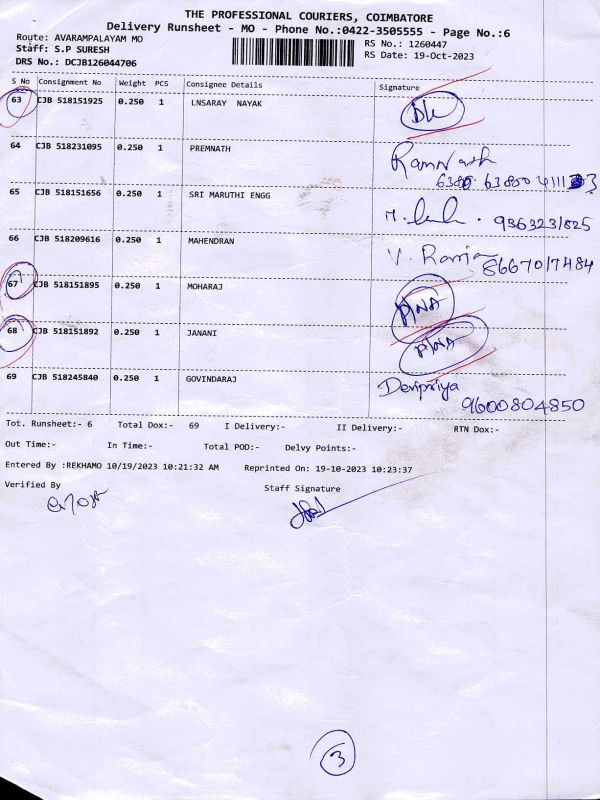 THE PROFESSIONAL COURIERS, COIMBATORE
Delivery Runsheet - MO - Phone No.:0422-3505555 - Page No.:6
Route: AVARAMPALAYAM MO RS No.: 1260447
Staff: S.P SURESH RS Date: 19-Oct-2023
DRS No.: DCJB126044706
S No Consignment No Weight PCS Consignee Details Signature
63 CJB 518151925 0.250 1 LNSARAY NAYAK DL
64 CJB 518231095 0.250 1 PREMNATH
65 CJB 518151656 0.250 1 SRI MARUTHI ENGG 9363231825
66 CJB 518209616 0.250 1 MAHENDRAN V. Ramja
8667017484
67 CJB 518151895 0.250 1 MOHARAJ P/NA
68 CJB 518151892 0.250 1 JANANI P/NA
69 CJB 518245840 0.250 1 GOVINDARAJ Devipriya
9600804850
Tot. Runsheet:- 6 Total Dox:- 69 I Delivery:- II Delivery:- RTN Dox:-
Out Time:- In Time:- Total POD:- Delvy Points:-
Entered By :REKHAMO 10/19/2023 10:21:32 AM Reprinted On: 19-10-2023 10:23:37
Verified By Staff Signature
3